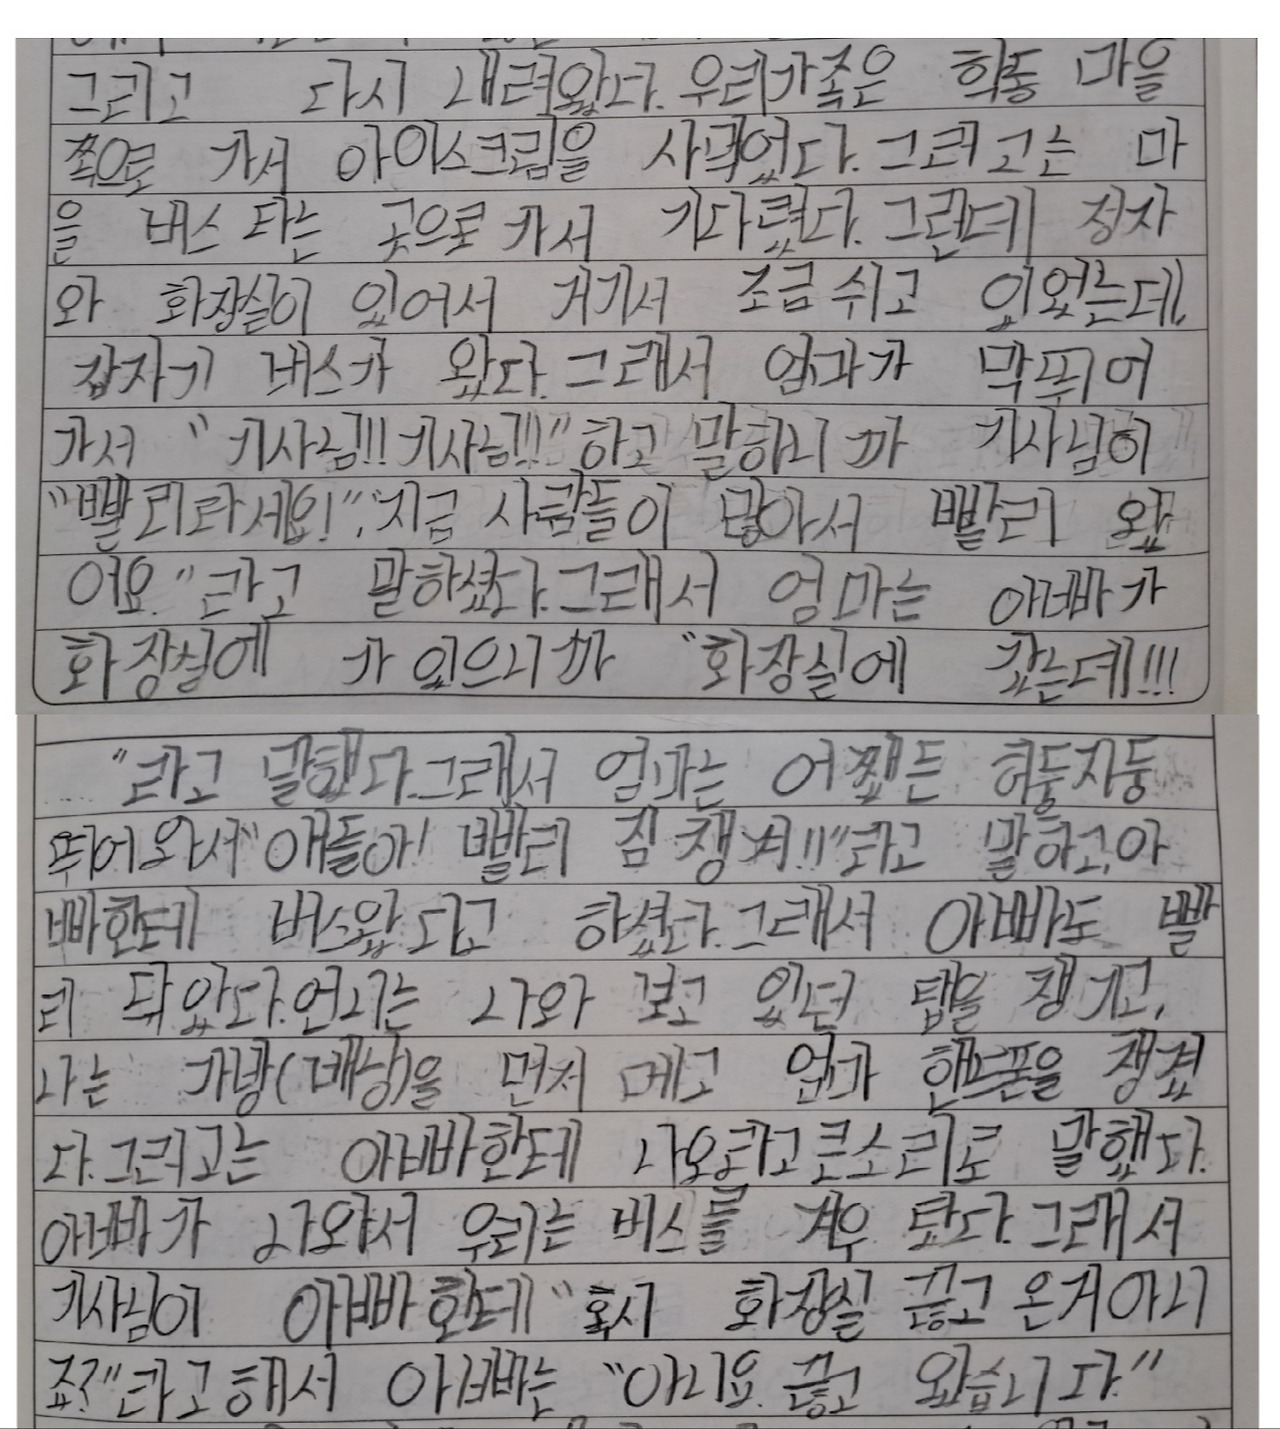 그리고 다시 내려왔다. 우리가족은 학동 마을
쪽으로 가서 아이스크림을 사먹었다. 그러고는 마
을 버스 타는 곳으로 가서 기다렸다. 그런데 정자
와 화장실이 있어서 거기서 조금 쉬고 있었는데,
갑자기 버스가 왔다. 그래서 엄마가 막 뛰어
가서 "기사님!!! 기사님!!!" 하고 말하니까 기사님이
"빨리타세요!", "지금 사람들이 많아서 빨리 왔
어요." 라고 말하셨다. 그래서 엄마는 아빠가
화장실에 가 있으니까 "화장실에 갔는데!!!
"라고 말했다. 그래서 엄마는 어쨌든 허둥지둥
뛰어 와서 "얘들아! 빨리 짐 챙겨!!!" 라고 말하고, 아
빠한테 버스왔다고 하셨다. 그래서 아빠도 빨
리 뛰었다. 언니는 나와 보고 있던 탭을 챙기고,
나는 가방(배낭)을 먼저 메고 엄마 핸드폰을 챙겼
다. 그러고는 아빠한테 나오라고 큰소리로 말했다.
아빠가 나와서 우리는 버스를 겨우 탔다. 그래서
기사님이 아빠한테 "혹시 화장실 끊고 온거 아니
죠?" 라고 해서 아빠는 "아니요. 끊고 왔습니다."